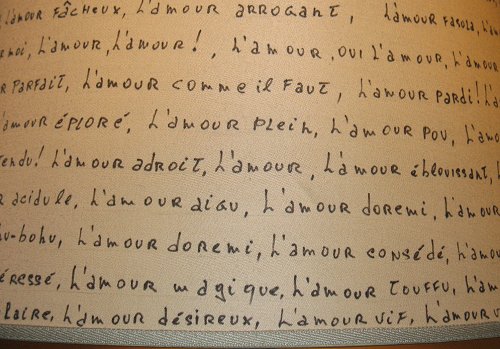 L'amour fâcheux, L'amour arrogant, L'amour fasola, L'am
moi, L'amour, L'amour!, L'amour, oui L'amour, L'amour
R parfait, L'amour comme il faut, L'amour pardi! L'a
'amour éploré, L'amour plein, L'amour pou, L'amo
tendu! L'amour adroit, L'amour, L'amour éblouissant, L
R acidule, L'amour aigu, L'amour doremi, L'amour
hu-bohu, L'amour doremi, L'amour consédé, L'amou
éressé, L'amour magique, L'amour touffu, L'am
laire, L'amour désireux, L'amour vif, L'amour v